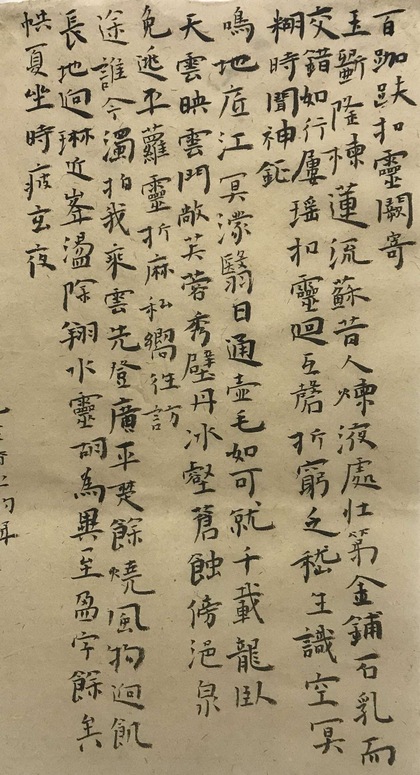 百跏趺扣靈闕寄
玉罌隆棟蓮流蘇昔人煉液處壯第金鋪石乳而
交錯如行屢瑶扣靈迴互磬折窮乏嵇生識空冥
糊時聞神鉦
鳴地底江冥濛翳日通壺毛如可就千載龍臥
天雲映雲門敞芙蓉秀壁丹冰壑篬蝕傍浥泉
免逃平蘿靈折麻私嚮往訪
途誰令濁拍我乘雲先登廣平楚餘燒風物迥飢
長地迥琳近峯盪除翔水靈砌為異至盈字餘矣
帙夏坐時疲玄夜